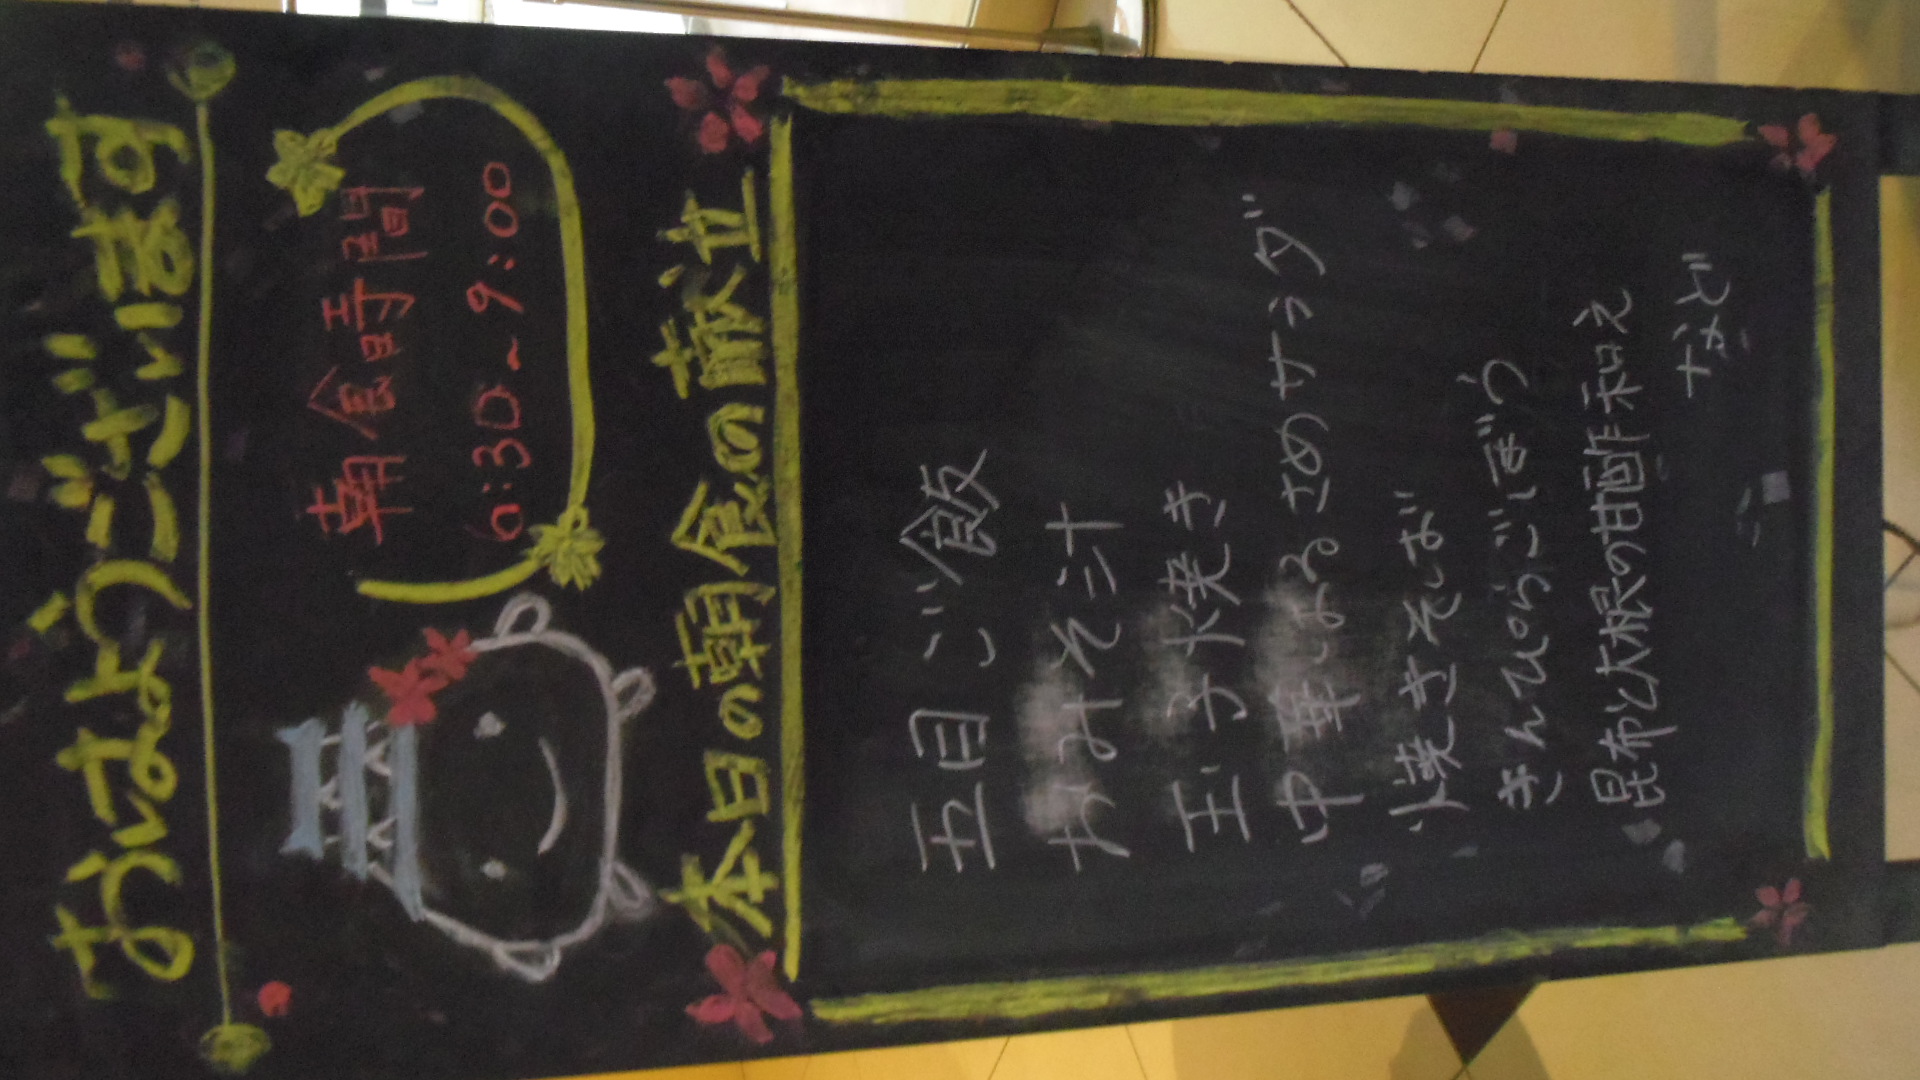 おはようございます
朝食時間
6:30~9:00
本日の朝食の献立
五目ご飯
おみそ汁
玉子焼き
中華はるさめサラダ
焼きそば
きんぴらごぼう
昆布と大根の甘酢和え
など